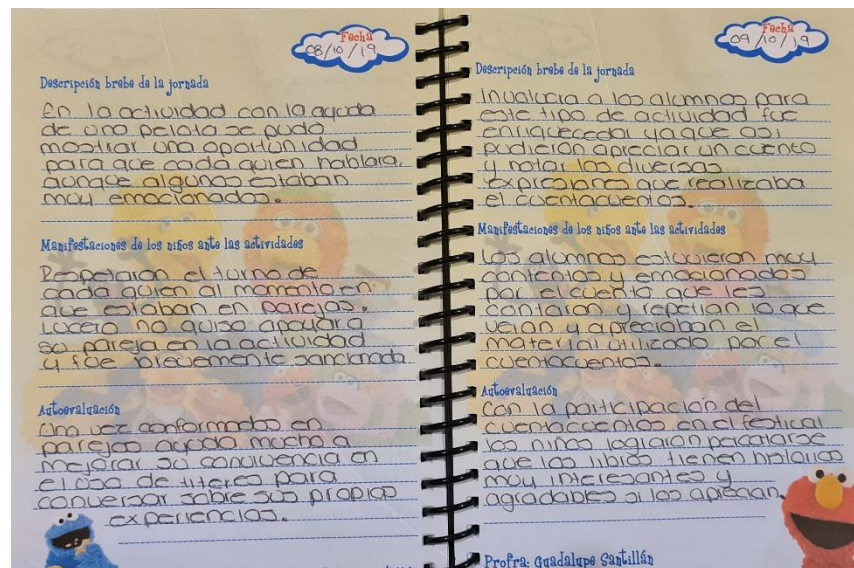 Fecha
08/10/19
Descripción brebe de la jornada
En la actividad con la ayuda
de una pelota se pudo
mostrar una oportunidad
para que cada quien hablara,
aunque algunos estaban
muy emocionados.
Manifestaciones de los niños ante las actividades
Respetaron el turno de
cada quien al momento en
que estaban en parejas.
Lucero no quiso apoyar a
su pareja en la actividad
y fue brevemente sancionada
Autoevaluación
Una vez conformados en
parejas ayuda mucho a
mejorar su convivencia en
el uso de titeres para
conversar sobre sus propias
experiencias.
Fecha
09/10/19
Descripción brebe de la jornada
Involucra a los alumnos para
este tipo de actividad fue
enriquecedor ya que asi
pudieron apreciar un cuento
y notar las diversas
expresiones que realizaba
el cuentacuentos.
Manifestaciones de los niños ante las actividades
Los alumnos estuvieron muy
contentos y emocionados
por el cuento que les
contaron y repetian lo que
veian y apreciaban el
material utilizado por el
cuentacuentos.
Autoevaluación
Con la participación del
cuentacuentos en el festival
los niños lograron percatarse
que los libros tienen historias
muy interesantes y
agradables si los aprecian.
Profra: Guadalupe Santillán